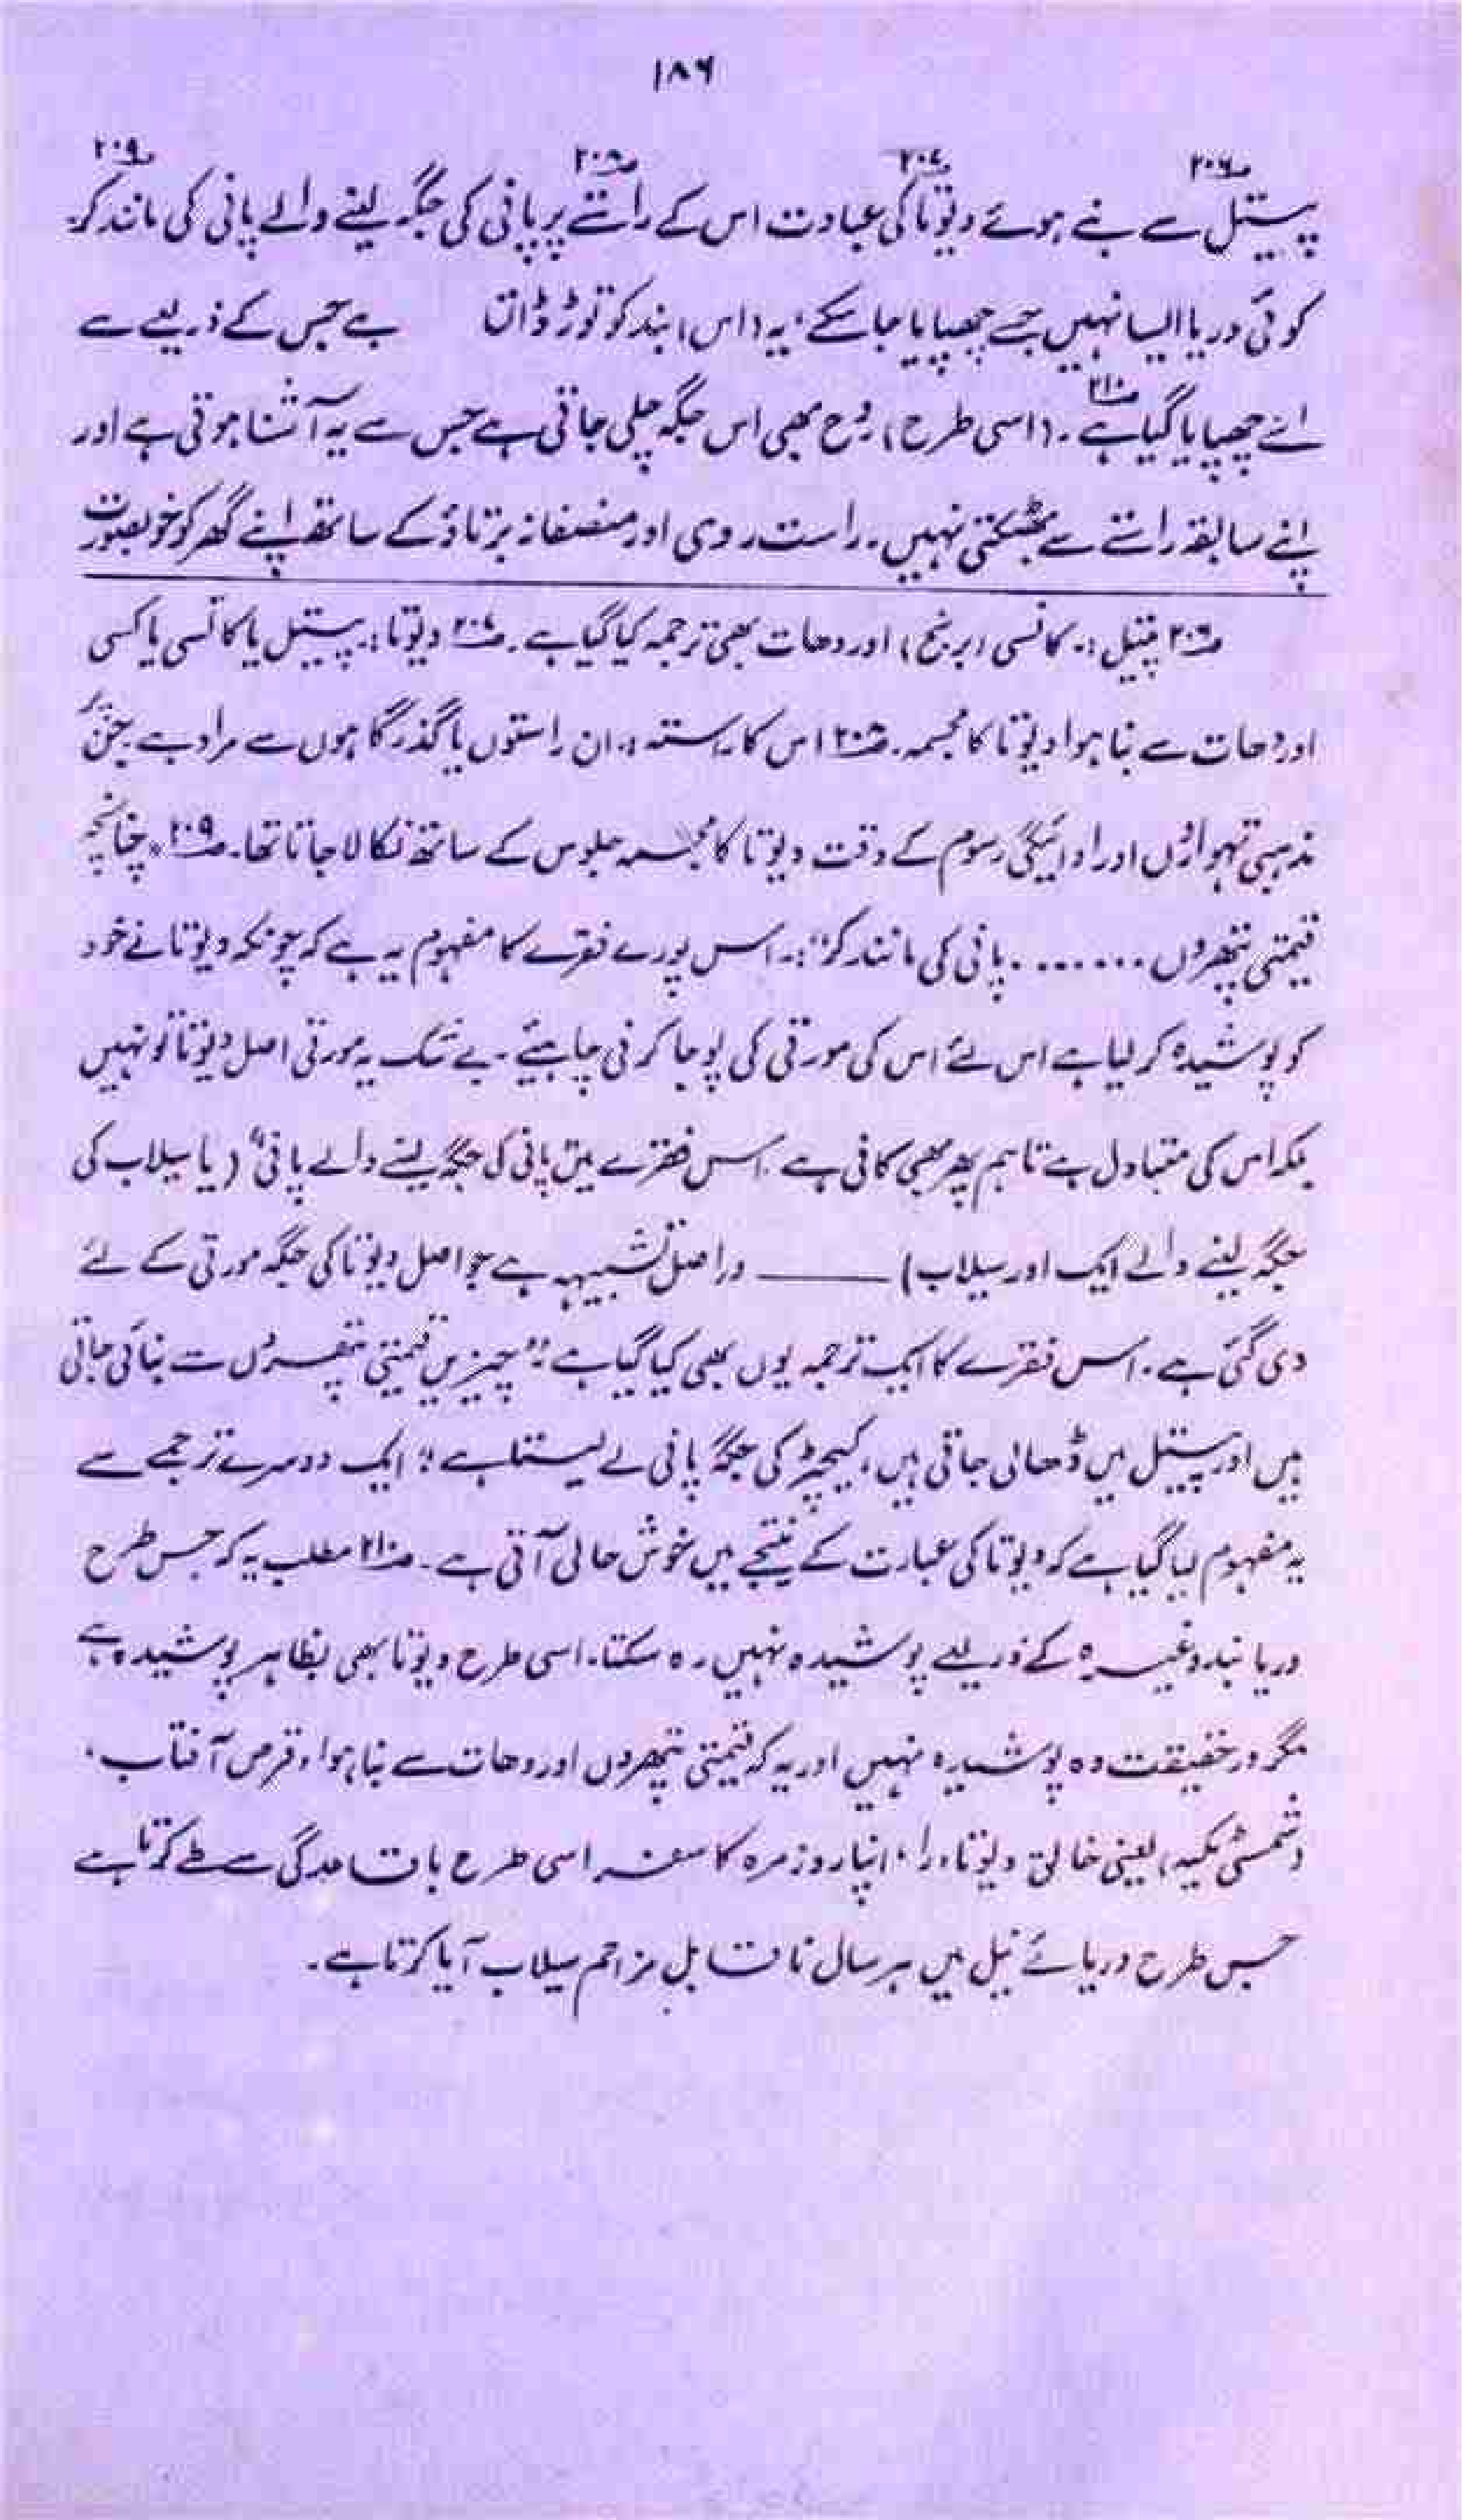 ۱۸۶
پیتل۲۰۶ سے بنے ہوئے دیوتا۲۰۷ کی عبادت اس کے راستے۲۰۸ پر پانی کی جگہ لینے والے پانی کی مانند کر۲۰۹۔
کوئی دریا ایسا نہیں جسے چھپایا جا سکے؛ یہ (اس) بند کو توڑ ڈالتا ہے جس کے ذریعے سے
اسے چھپایا گیا ہے۲۱۰۔ (اسی طرح) روح بھی اس جگہ چلی جاتی ہے جس سے یہ آشنا ہوتی ہے اور
اپنے سابقہ راستے سے بھٹکتی نہیں۔ راست روی اور منصفانہ برتاؤ کے ساتھ اپنے گھر کو خوبصورت
۲۰۶ پیتل:۔ کانسی (برنج) اور دھات بھی ترجمہ کیا گیا ہے۔ ۲۰۷ دیوتا:۔ پیتل یا کانسی یا کسی
اور دھات سے بنا ہوا دیوتا کا مجسمہ۔ ۲۰۸ اس کا راستہ:۔ ان راستوں یا گذرگاہوں سے مراد ہے جن پر
مذہبی تہواروں اور ادائیگی رسوم کے وقت دیوتا کا مجسمہ جلوس کے ساتھ نکالا جاتا تھا۔ ۲۰۹ "چنانچہ
قیمتی پتھروں ....... پانی کی مانند کر":۔ اس پورے فقرے کا مفہوم یہ ہے کہ چونکہ دیوتا نے خود
کو پوشیدہ کر لیا ہے اس لئے اس کی مورتی کی پوجا کرنی چاہیئے۔ بے شک یہ مورتی اصل دیوتا تو نہیں
بلکہ اس کی متبادل ہے تاہم پھر بھی کافی ہے۔ اس فقرے میں "پانی کی جگہ لینے والے پانی" (یا سیلاب کی
جگہ لینے والے ایک اور سیلاب) ——— دراصل تشبیہہ ہے جو اصل دیوتا کی جگہ مورتی کے لئے
دی گئی ہے۔ اس فقرے کا ایک ترجمہ یوں بھی کیا گیا ہے: "چیزیں قیمتی پتھروں سے بنائی جاتی
ہیں اور پیتل میں ڈھالی جاتی ہیں، کیچڑ کی جگہ پانی لے لیتا ہے"؛ ایک دوسرے ترجمے سے
یہ مفہوم لیا گیا ہے کہ دیوتا کی عبارت کے نتیجے میں خوش حالی آتی ہے۔ ۲۱۰ مطلب یہ کہ جس طرح
دریا بند وغیرہ کے ذریعے پوشیدہ نہیں رہ سکتا۔ اسی طرح دیوتا بھی بظاہر پوشیدہ ہے
مگر درحقیقت وہ پوشیدہ نہیں اور یہ کہ قیمتی پتھروں اور دھات سے بنا ہوا، قرص آفتاب،
(شمسی ٹکیہ) یعنی خالق دیوتا، را، اپنا روزمرہ کا سفر اسی طرح باقاعدگی سے طے کرتا ہے
جس طرح دریائے نیل میں ہر سال ناقابل مزاحم سیلاب آیا کرتا ہے۔